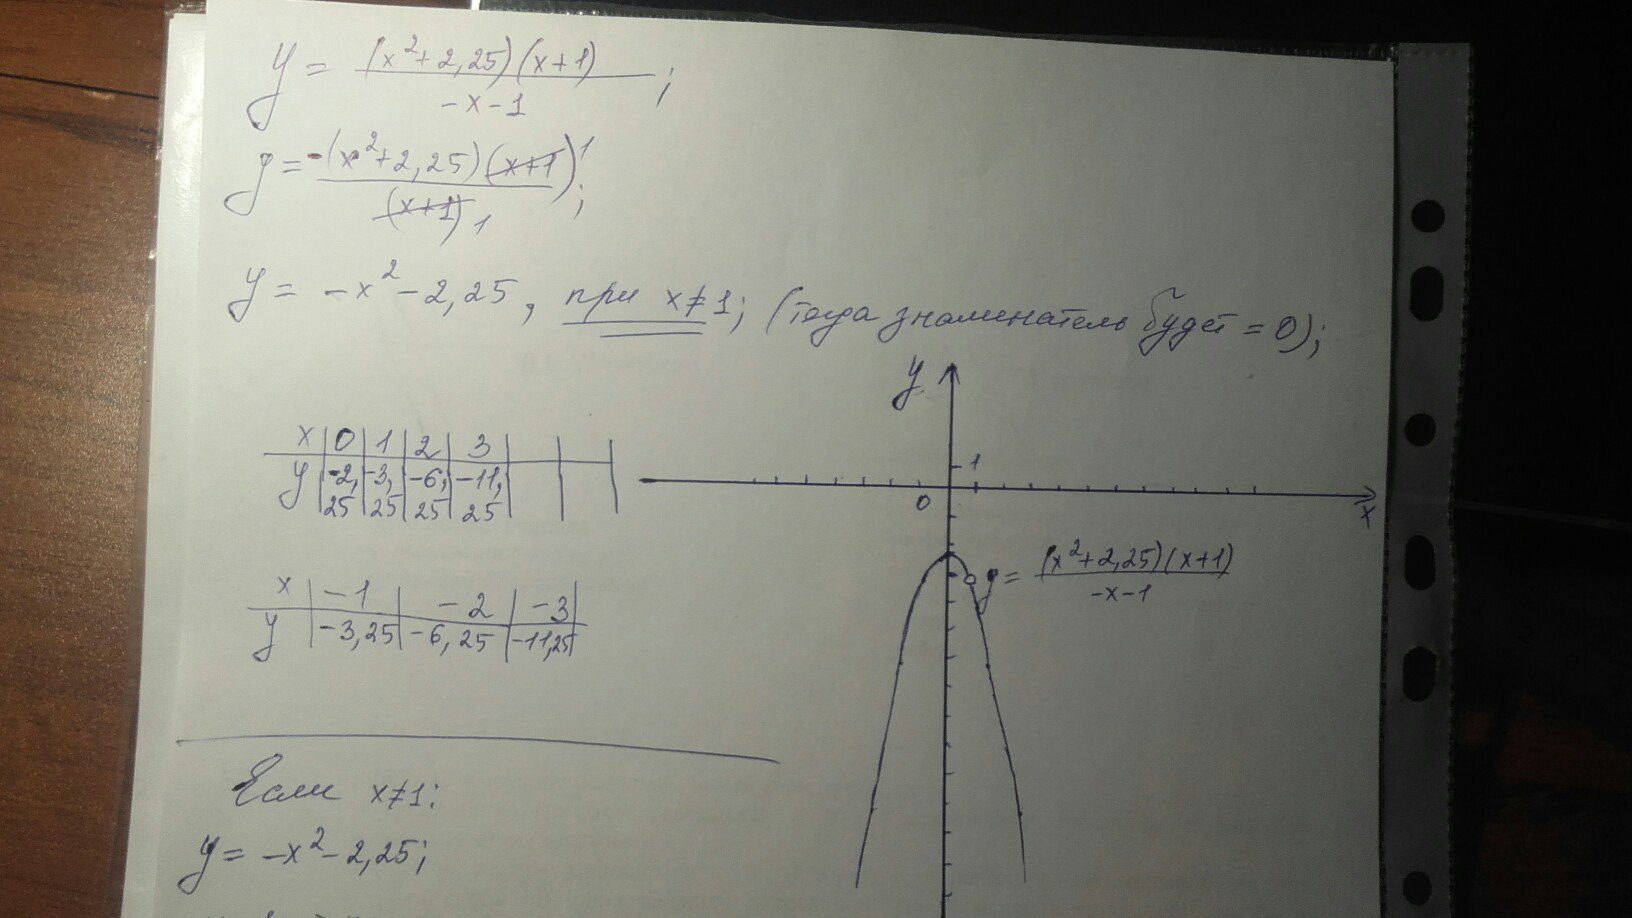 y = (x²+2,25)(x+1) / -x-1 ;
y = -(x²+2,25)(x+1) 1 / (x+1) 1 ;
y = -x²-2,25, при x≠1; (тогда знаминатель будет = 0);
x | 0 | 1 | 2 | 3
y | -2,25 | -3,25 | -6,25 | -11,25
x | -1 | -2 | -3
y | -3,25 | -6,25 | -11,25
y
1
0
x
y = (x²+2,25)(x+1) / -x-1
Если x≠1:
y = -x²-2,25;